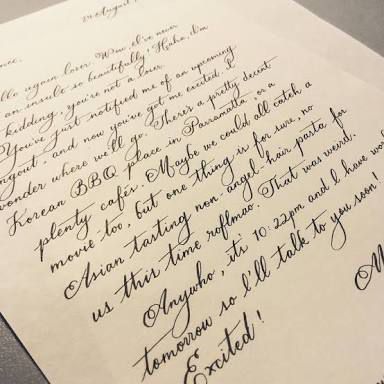 24 August
llo again loser. Wow, I've never
an insult so beautifully! Haha, I'm
kidding, you're not a loser.
You've just notified me of an upcoming
ngout, and now you've got me excited. I
wonder where we'll go. There's a pretty decent
Korean BBQ place in Parramatta, or a
plenty cafés. Maybe we could all catch a
movie too, but one thing is for sure, no
Asian tasting non angel-hair pasta for
us this time roflmao. That was weird.
Anywho, it's 10:22pm and I have wor
tomorrow so I'll talk to you soon!
Excited!
M